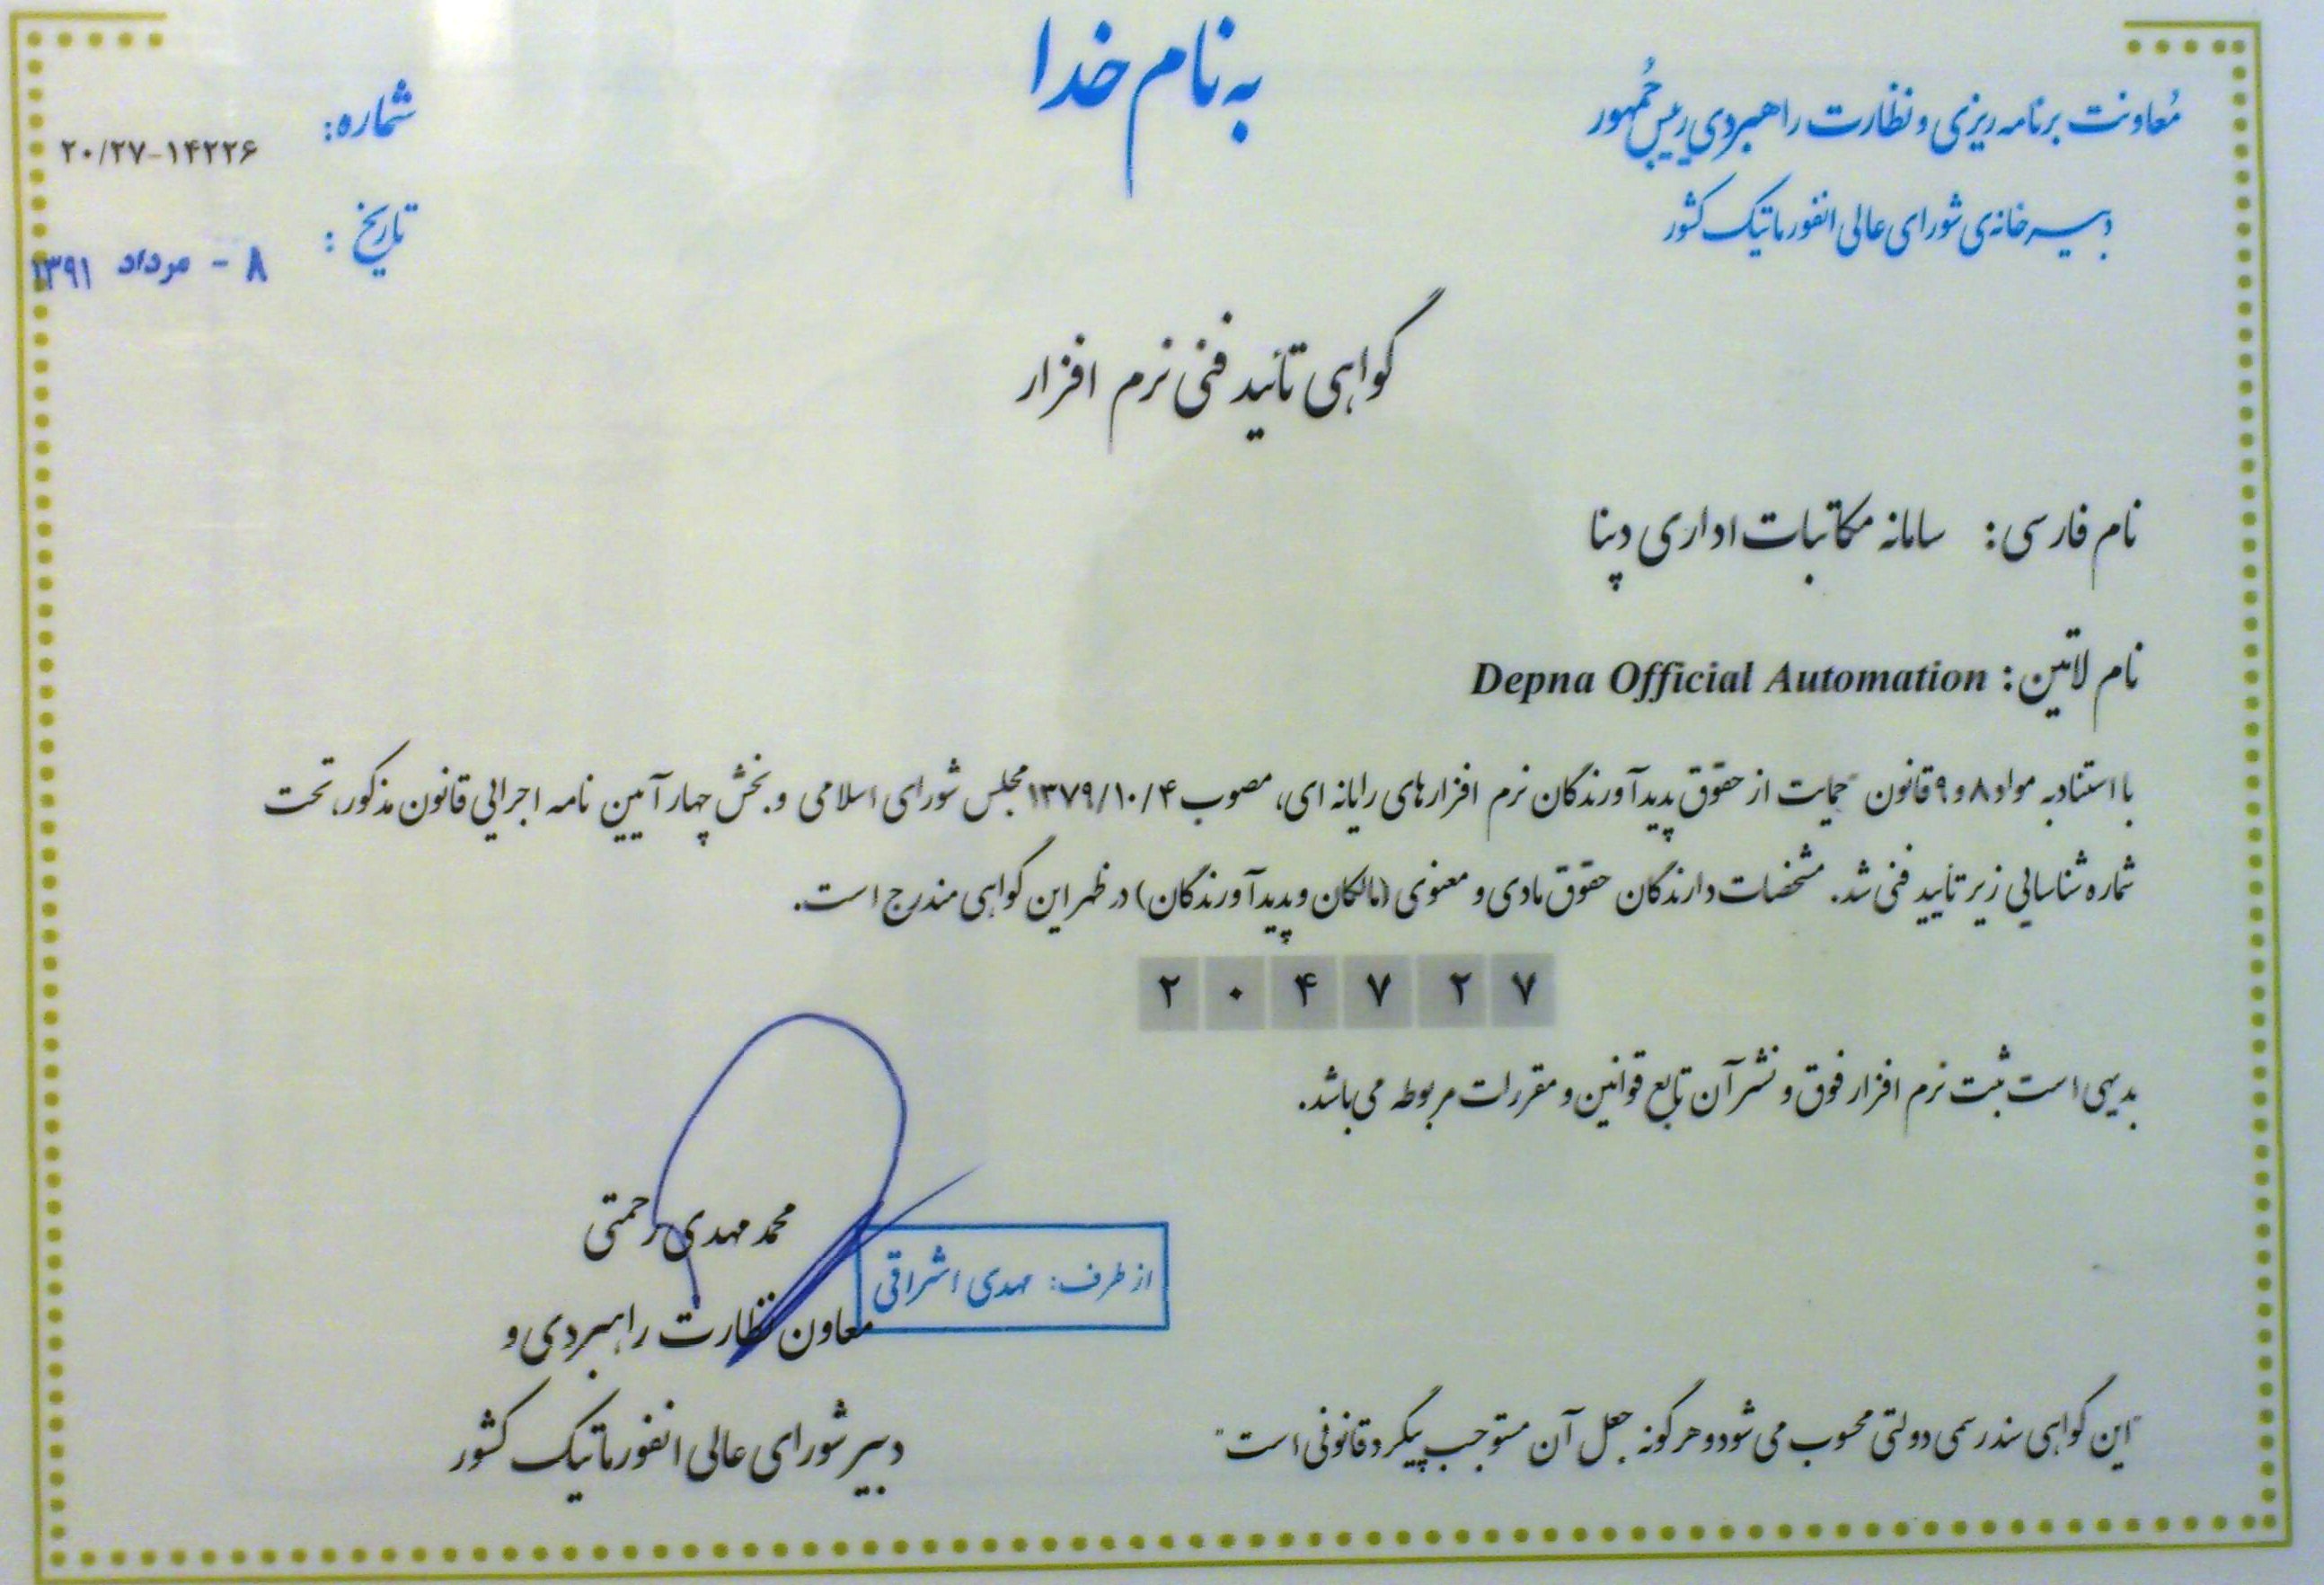 به نام خدا
معاونت برنامه ریزی و نظارت راهبردی رییس جمهور
دبیرخانه‌ی شورای عالی انفورماتیک کشور
شماره:
۲۰/۲۷-۱۴۲۲۶
تاریخ:
۸ - مرداد ۱۳۹۱
گواهی تأیید فنی نرم افزار
نام فارسی: سامانه مکاتبات اداری دپنا
نام لاتین: Depna Official Automation
با استناد به مواد ۸ و ۹ قانون "حمایت از حقوق پدیدآورندگان نرم افزارهای رایانه ای، مصوب ۱۳۷۹/۱۰/۴ مجلس شورای اسلامی و بخش چهار آیین نامه اجرایی قانون مذکور، تحت
شماره شناسایی زیر تأیید فنی شد. مشخصات دارندگان حقوق مادی و معنوی (مالکان و پدیدآورندگان) در ظهر این گواهی مندرج است.
۲ ۰ ۴ ۷ ۲ ۷
بدیهی است ثبت نرم افزار فوق و نشر آن تابع قوانین و مقررات مربوطه می باشد.
محمد مهدی رحمتی
از طرف: مهدی اشراقی
معاون نظارت راهبردی و
دبیر شورای عالی انفورماتیک کشور
"این گواهی سند رسمی دولتی محسوب می شود و هرگونه جعل آن مستوجب پیگرد قانونی است"